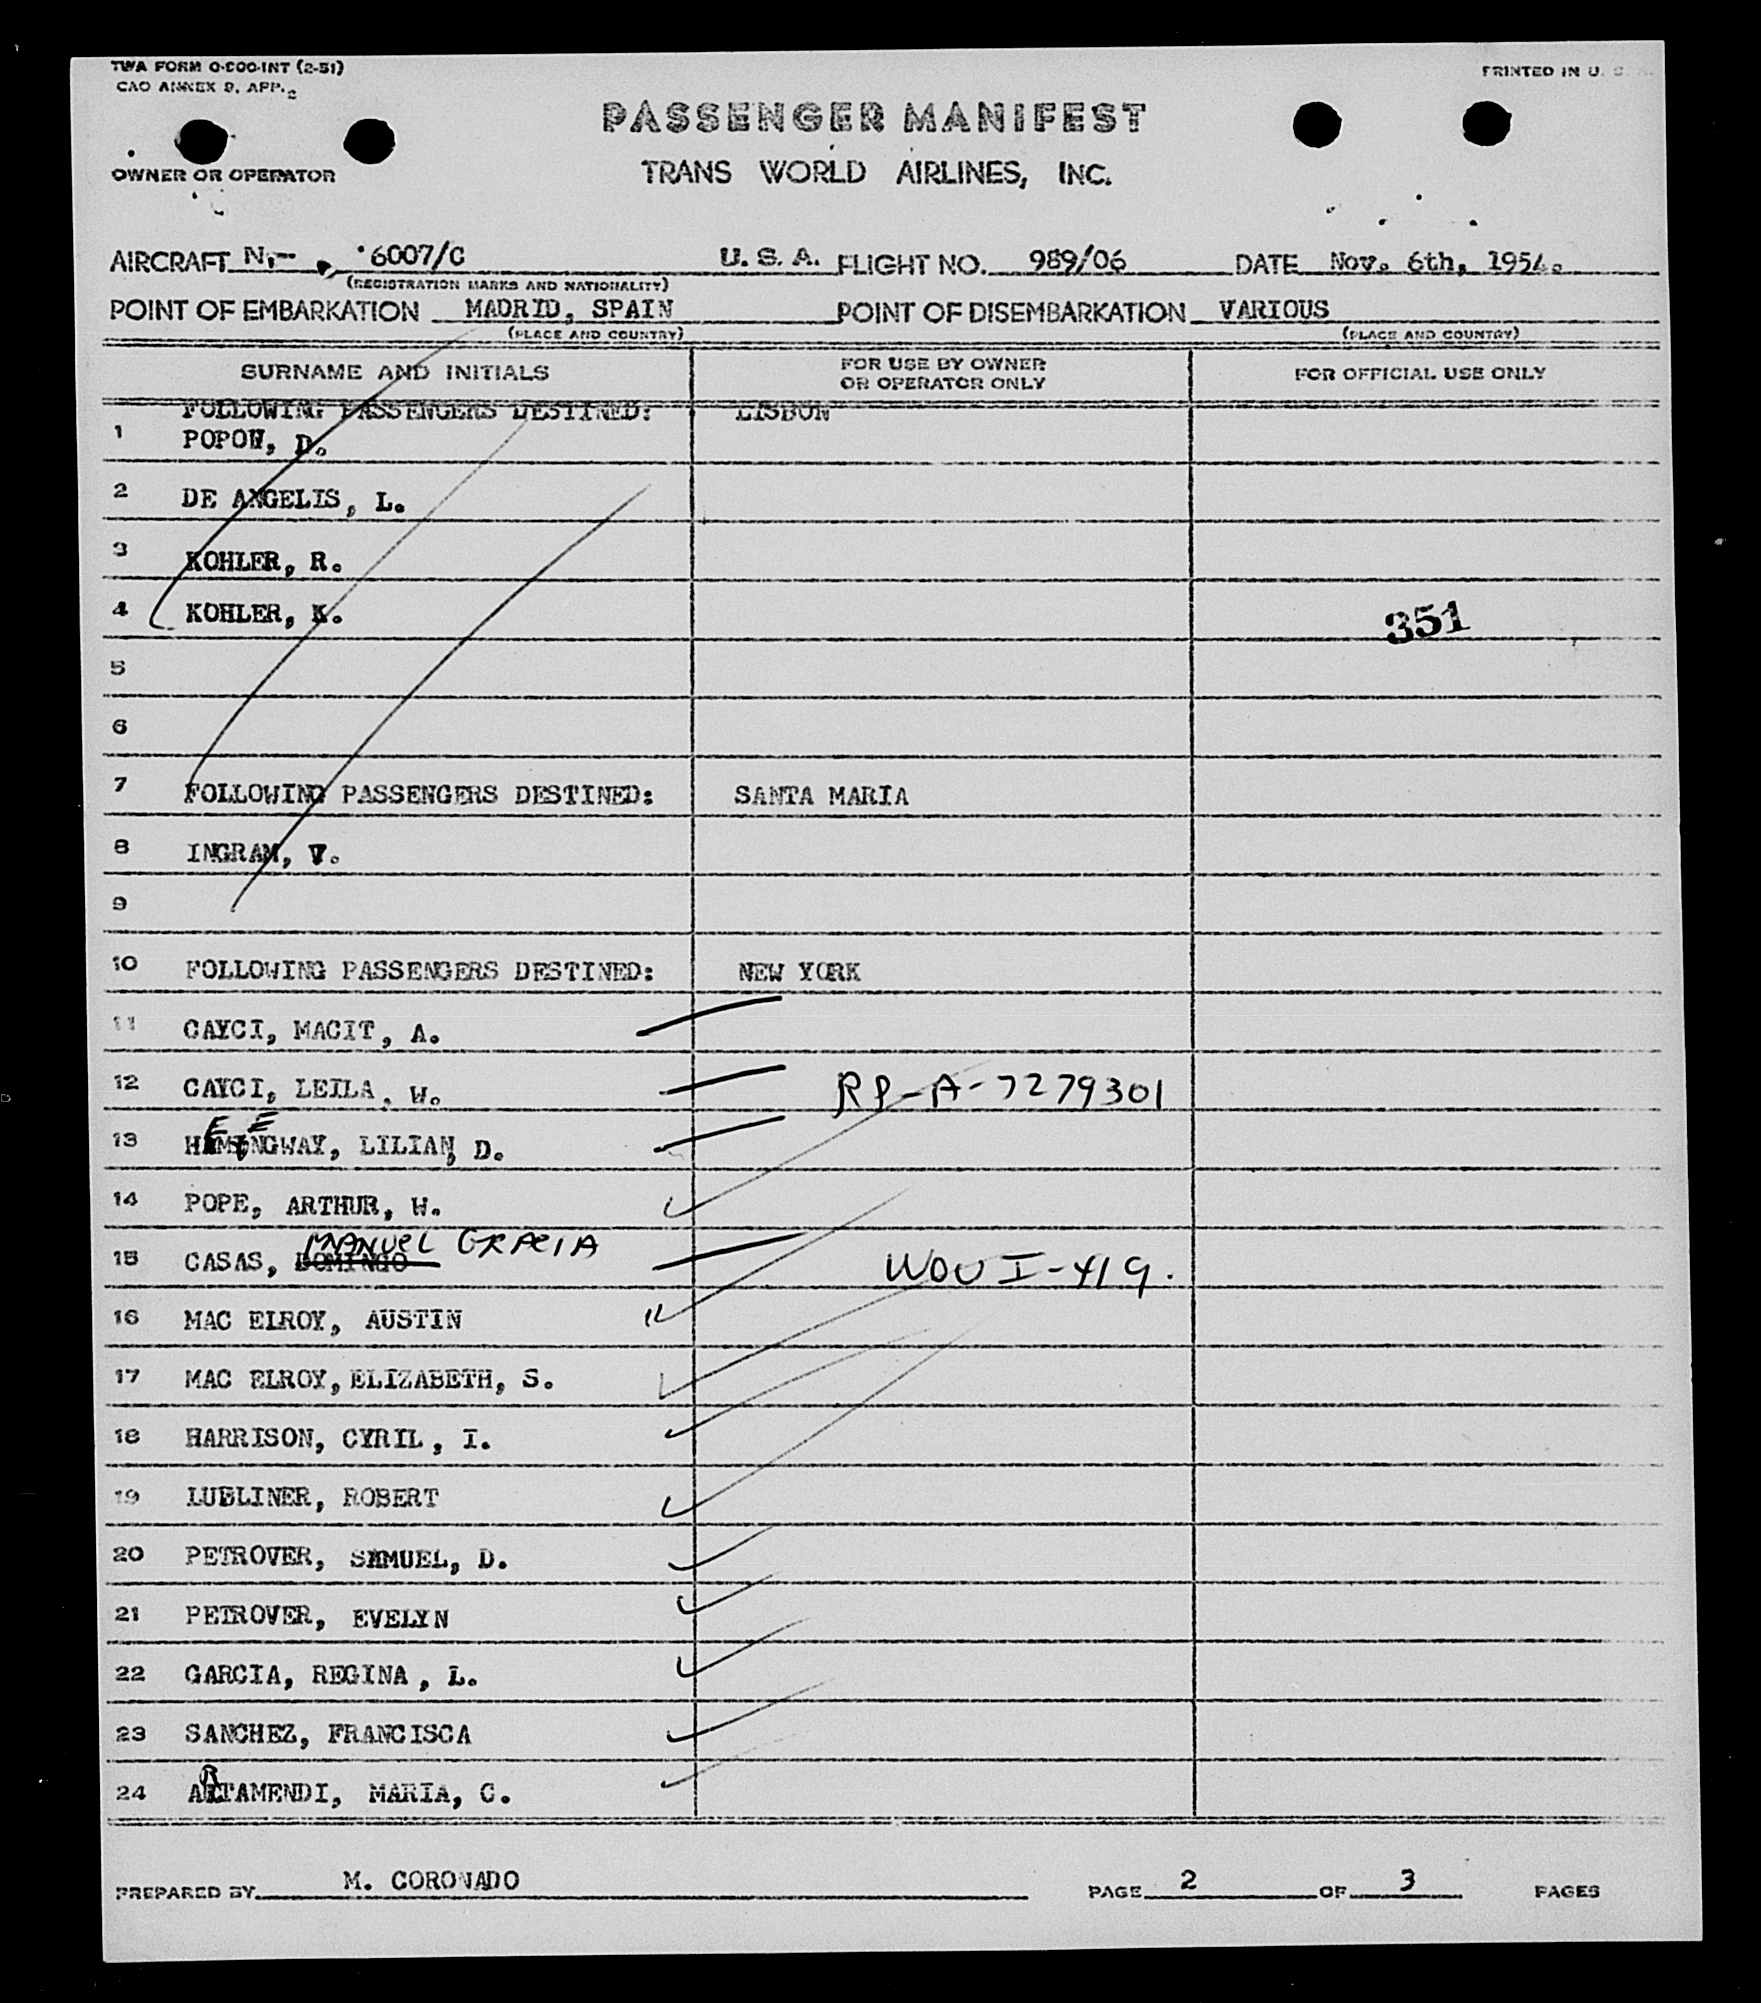 TWA FORM O-COO-INT (2-51)
CAO ANNEX 9, APP. 2
PRINTED IN U. S. A.
PASSENGER MANIFEST
OWNER OR OPERATOR
TRANS WORLD AIRLINES, INC.
AIRCRAFT N.- 6007/C U. S. A. FLIGHT NO. 989/06 DATE Nov. 6th, 1954.
(REGISTRATION MARKS AND NATIONALITY)
POINT OF EMBARKATION MADRID, SPAIN POINT OF DISEMBARKATION VARIOUS
(PLACE AND COUNTRY) (PLACE AND COUNTRY)
SURNAME AND INITIALS FOR USE BY OWNER OR OPERATOR ONLY FOR OFFICIAL USE ONLY
FOLLOWING PASSENGERS DESTINED: LISBON
1 POPOW, D.
2 DE ANGELIS, L.
3 KOHLER, R.
4 KOHLER, K. 351
5
6
7 FOLLOWING PASSENGERS DESTINED: SANTA MARIA
8 INGRAM, V.
9
10 FOLLOWING PASSENGERS DESTINED: NEW YORK
11 CAYCI, MACIT, A.
12 CAYCI, LEILA, W. RP-A-7279301
E E
13 HEMENGWAY, LILIAN, D.
14 POPE, ARTHUR, W.
MANUEL GRACIA
15 CASAS, DOMINGO WOU I-419.
16 MAC ELROY, AUSTIN
17 MAC ELROY, ELIZABETH, S.
18 HARRISON, CYRIL, I.
19 LUBLINER, ROBERT
20 PETROVER, SEMUEL, D.
21 PETROVER, EVELYN
22 GARCIA, REGINA, L.
23 SANCHEZ, FRANCISCA
24 ARTAMENDI, MARIA, C.
PREPARED BY M. CORONADO PAGE 2 OF 3 PAGES